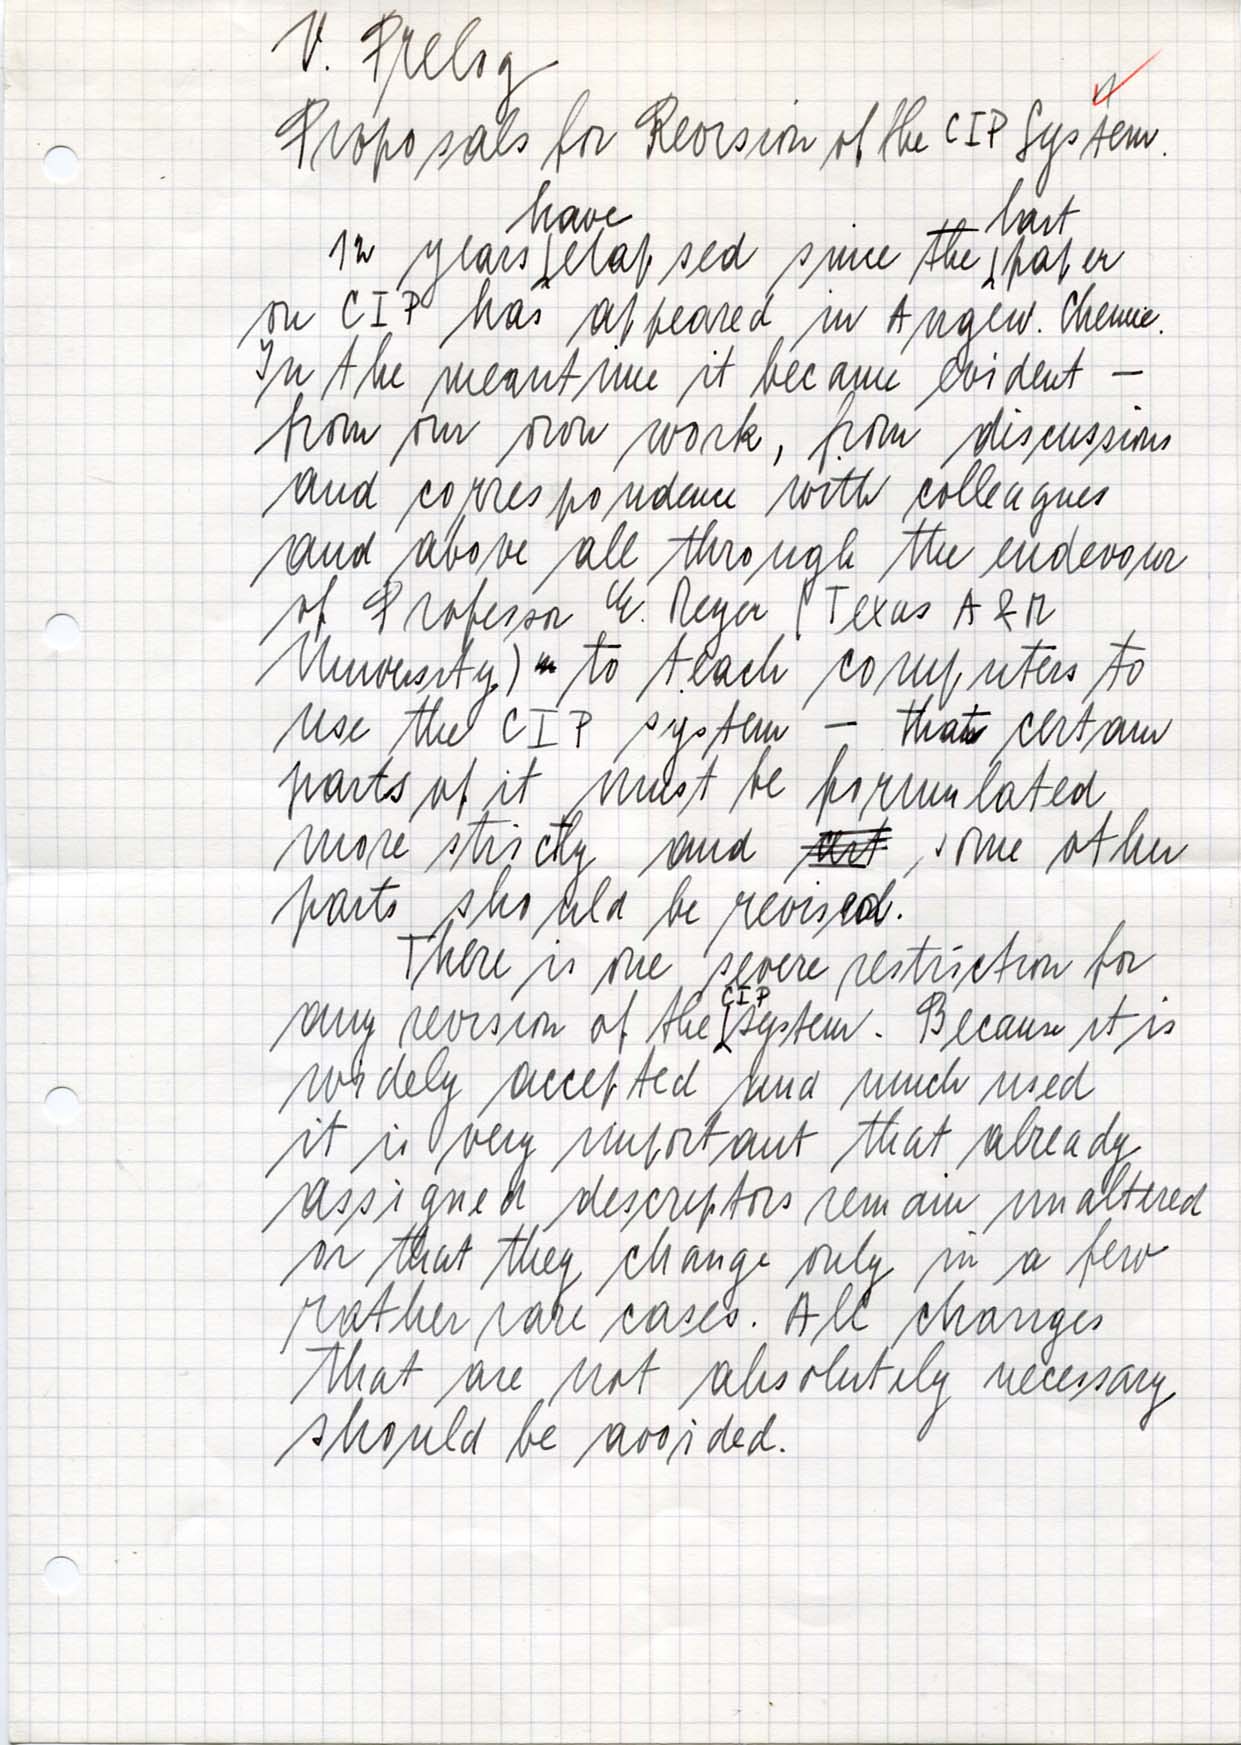 V. Prelog
Proposals for Revision of the CIP System.
12 years have elapsed since the last paper
on CIP has appeared in Angew. Chemie.
In the meantime it became evident –
from our own work, from discussions
and correspondence with colleagues
and above all through the endevour
of Professor E. Meyer (Texas A & M
University) to teach computers to
use the CIP system – that certain
parts of it must be formulated
more strictly and some other
parts should be revised.
There is one severe restriction for
any revision of the CIP system. Because it is
widely accepted and much used
it is very important that already
assigned descriptors remain unaltered
or that they change only in a few
rather rare cases. All changes
that are not absolutely necessary
should be avoided.